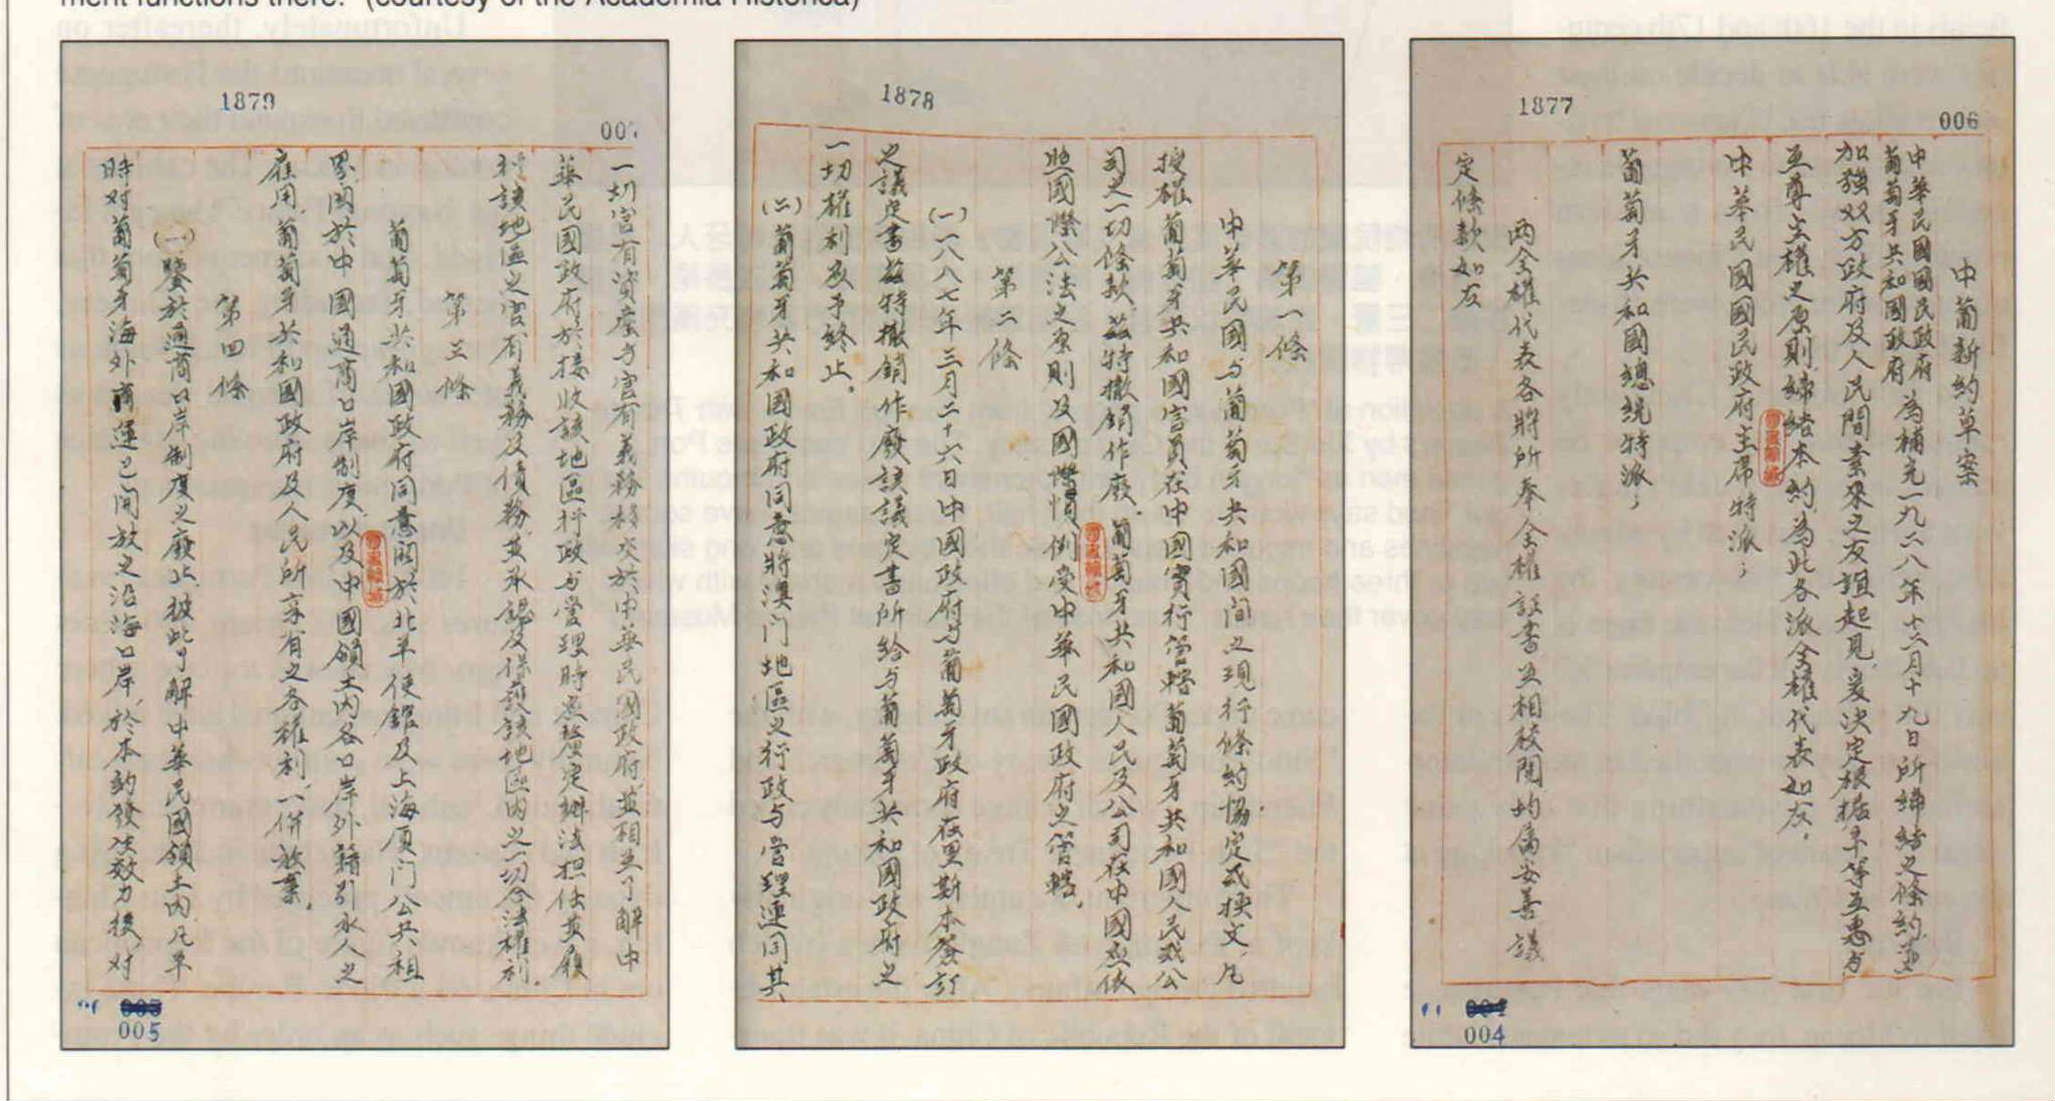 ment functions there. (courtesy of the Academia Historica)
1877
006
中葡新約草案
中華民國國民政府
葡萄牙共和國政府
為補充一九二八年十二月十九日所締結之條約並
加强双方政府及人民間素來之友誼起見爰決定根據平等互惠与
互尊主權之原則締結本約為此各派全權代表如左，
中華民國國民政府主席特派；
葡萄牙共和國總統特派；
兩全權代表各將所奉全權証書互相校閱均屬妥善議
定條款如左
004
004
1878
第一條
中華民國与葡萄牙共和國间之現行條約協定或换文，凡
授權葡萄牙共和國官員在中國實行管轄葡萄牙共和國人民或公
司之一切條款，茲特撤銷作廢。葡萄牙共和國人民及公司在中國應依
照國際公法之原則及國際慣例受中華民國政府之管轄
第二條
(一)一八八七年三月二十六日中國政府与葡萄牙政府在里斯本簽訂
之議定書茲特撤銷作廢該議定書所給与葡萄牙共和國政府之
一切權利亥予終止。
(二)葡萄牙共和國政府同意將澳门地區之行政与管理連同其
1879
007
一切官有資產与官有義務移交於中華民國政府，並相互了解中
華民國政府於接收該地區行政与管理時應釐定辦法担任並履
行該地區之官有義務及債務，並承認及保護該地區内之一切合法權利。
第三條
葡萄牙共和國政府同意關於北平使館及上海厦门公共租
界関於中國通商口岸制度，以及中國領土内各口岸外籍引水人之
雇用，葡萄牙共和國政府及人民所享有之各權利，一併放棄。
第四條
(一)鑒於通商口岸制度之廢止，彼此了解中華民國領土内，凡平
時对葡萄牙海外商運已開放之沿海口岸，於本約發生效力後，对
005
005